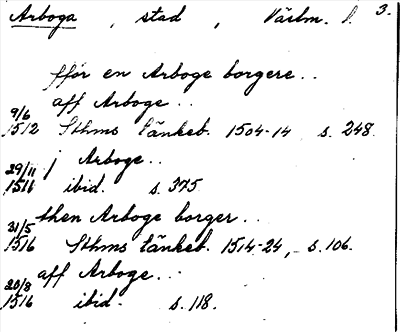 Arboga, stad, Västm. l. 3.
fför en Arboge borgere..
aff Arboge..
9/6 1512 Sthms tänkeb. 1504-14 s. 248.
j Arboge..
29/11 1516 ibid. s. 375
then Arboge borger..
31/5 1516 Sthms tänkeb. 1514-24, s. 106.
aff Arboge...
20/8 1516 ibid. s. 118.